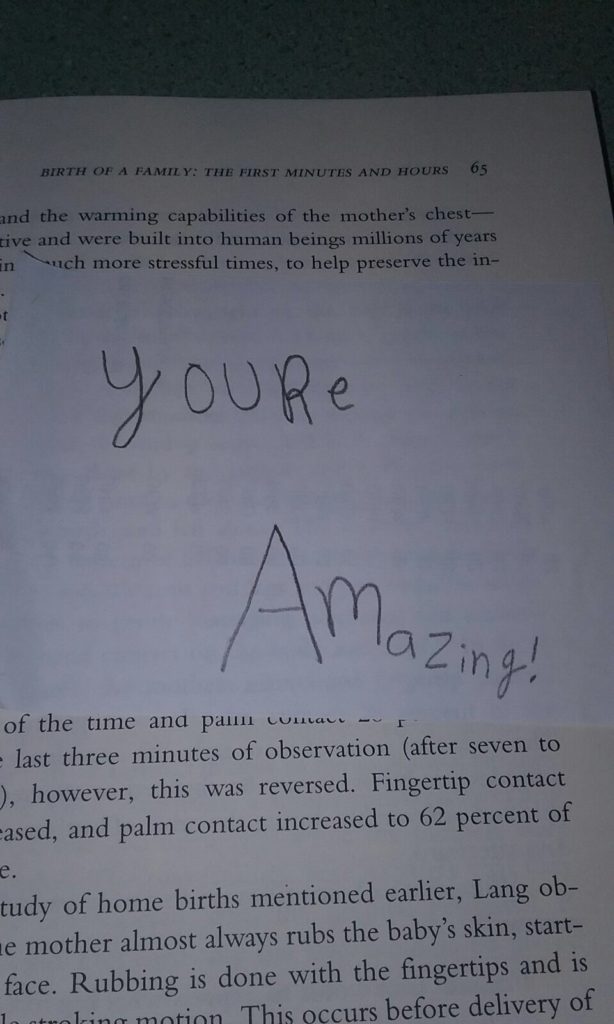 BIRTH OF A FAMILY: THE FIRST MINUTES AND HOURS 65
and the warming capabilities of the mother's chest—
tive and were built into human beings millions of years
in much more stressful times, to help preserve the in-
YOURe
Amazing!
of the time and palm contact
last three minutes of observation (after seven to
), however, this was reversed. Fingertip contact
eased, and palm contact increased to 62 percent of
e.
tudy of home births mentioned earlier, Lang ob-
e mother almost always rubs the baby's skin, start-
face. Rubbing is done with the fingertips and is
stroking motion. This occurs before delivery of